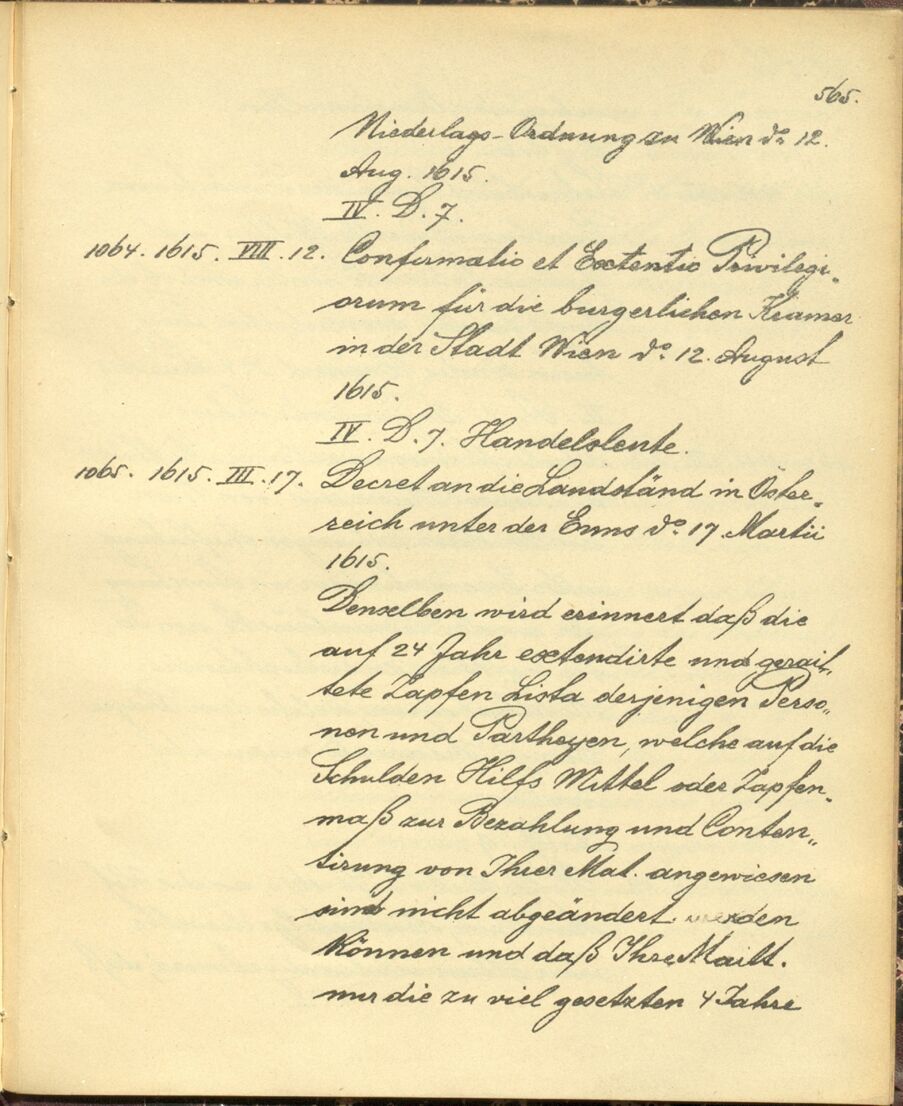 565.
Niederlags-Ordnung zu Wien do. 12.
Aug. 1615.
IV. D. 7.
1064. 1615. VIII. 12. Confirmatio et Extentio Privilegi„
orum für die burgerlichen Kramer
in der Stadt Wien do. 12. August
1615.
IV. D. 7. Handelsleute.
1065. 1615. III. 17. Decret an die Landständ in Öster„
reich unter der Enns do. 17 Martii
1615.
Denselben wird erinnert daß die
auf 24 Jahr extendirte und gerait„
tete Zapfen Lista derjenigen Perso„
nen und Partheyen, welche auf die
Schulden Hilfs Mittel oder Zapfen„
maß zur Bezahlung und Conten„
tirung von Ihrer Mat. angewiesen
sind nicht abgeändert werden
können und daß Ihre Maitt.
nur die zu viel gesetzten 4 Jahre